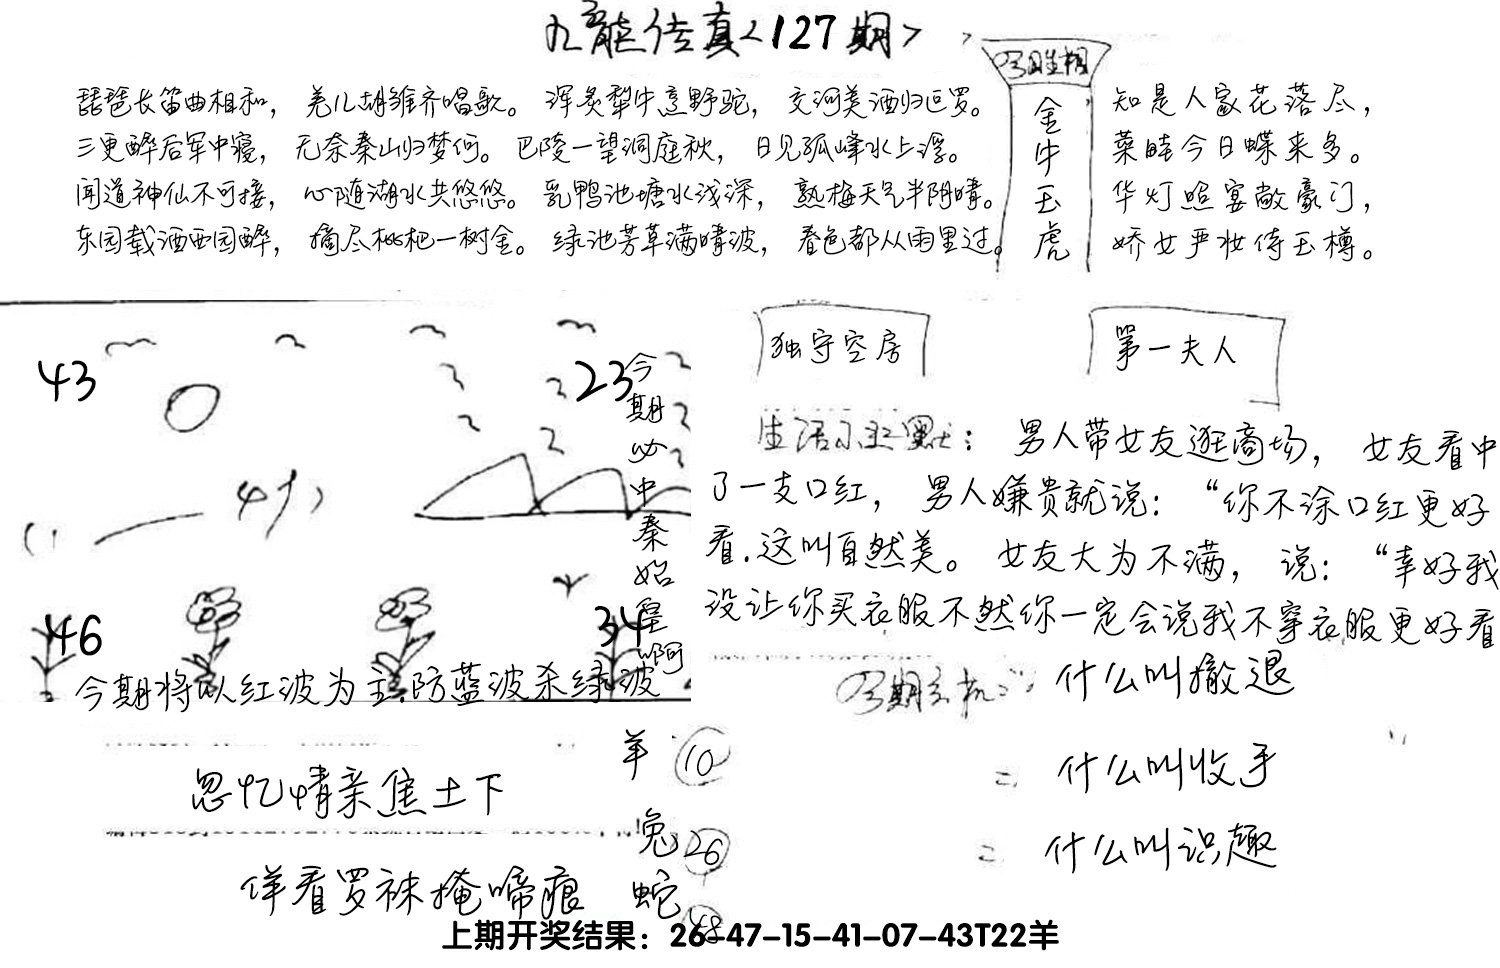 九龙传真<127期>
琵琶长笛曲相和，羌儿胡雏齐唱歌。浑炙犁牛烹野驼，交河美酒归叵罗。
三更醉后军中寝，无奈秦山归梦何。巴陵一望洞庭秋，日见孤峰水上浮。
闻道神仙不可接，心随湖水共悠悠。乳鸭池塘水浅深，熟梅天气半阴晴。
东园载酒西园醉，摘尽枇杷一树金。绿池芳草满晴波，春色都从雨里过。
金
牛
玉
虎
知是人家花落尽，
菜畦今日蝶来多。
华灯照宴敞豪门，
娇女严妆侍玉樽。
43
23
46
34
今期必中秦始皇啊
今期将以红波为主.防蓝波杀绿波
独守空房
第一夫人
生活幽默：男人带女友逛商场，女友看中
了一支口红，男人嫌贵就说：“你不涂口红更好
看.这叫自然美。女友大为不满，说：“幸好我
没让你买衣服不然你一定会说我不穿衣服更好看
什么叫撤退
什么叫收手
什么叫识趣
忽忆情亲焦土下
佯看罗袜掩啼痕
羊 10
兔 26
蛇 48
上期开奖结果：26-47-15-41-07-43T22羊